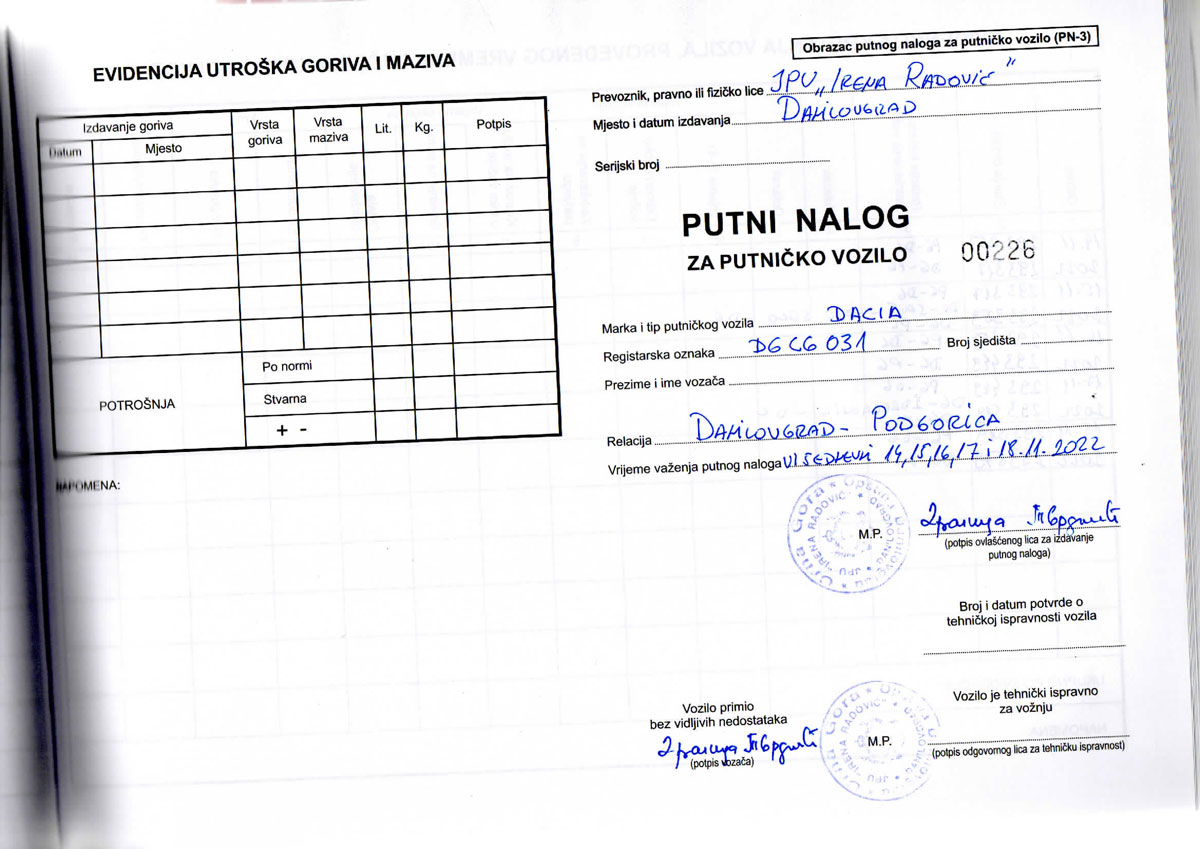 EVIDENCIJA UTROŠKA GORIVA I MAZIVA
Izdavanje goriva
Datum
Mjesto
Vrsta goriva
Vrsta maziva
Lit.
Kg.
Potpis
POTROŠNJA
Po normi
Stvarna
+ -
NAPOMENA:
Obrazac putnog naloga za putničko vozilo (PN-3)
Prevoznik, pravno ili fizičko lice JPU „IRENA RADOVIĆ"
Mjesto i datum izdavanja DANILOVGRAD
Serijski broj
PUTNI NALOG
ZA PUTNIČKO VOZILO 00226
Marka i tip putničkog vozila DACIA
Registarska oznaka DG CG 031 Broj sjedišta
Prezime i ime vozača
Relacija DANILOVGRAD - PODGORICA
Vrijeme važenja putnog naloga VIŠEDNEVNI 14,15,16,17 i 18.11.2022
Crna Gora * Opština Danilovgrad *
JPU "IRENA RADOVIĆ" * DANILOVGRAD
M.P.
(potpis ovlašćenog lica za izdavanje
putnog naloga)
Broj i datum potvrde o
tehničkoj ispravnosti vozila
Vozilo primio
bez vidljivih nedostataka
(potpis vozača)
Crna Gora * Opština Danilovgrad *
JPU "IRENA RADOVIĆ" * DANILOVGRAD
M.P.
Vozilo je tehnički ispravno
za vožnju
(potpis odgovornog lica za tehničku ispravnost)